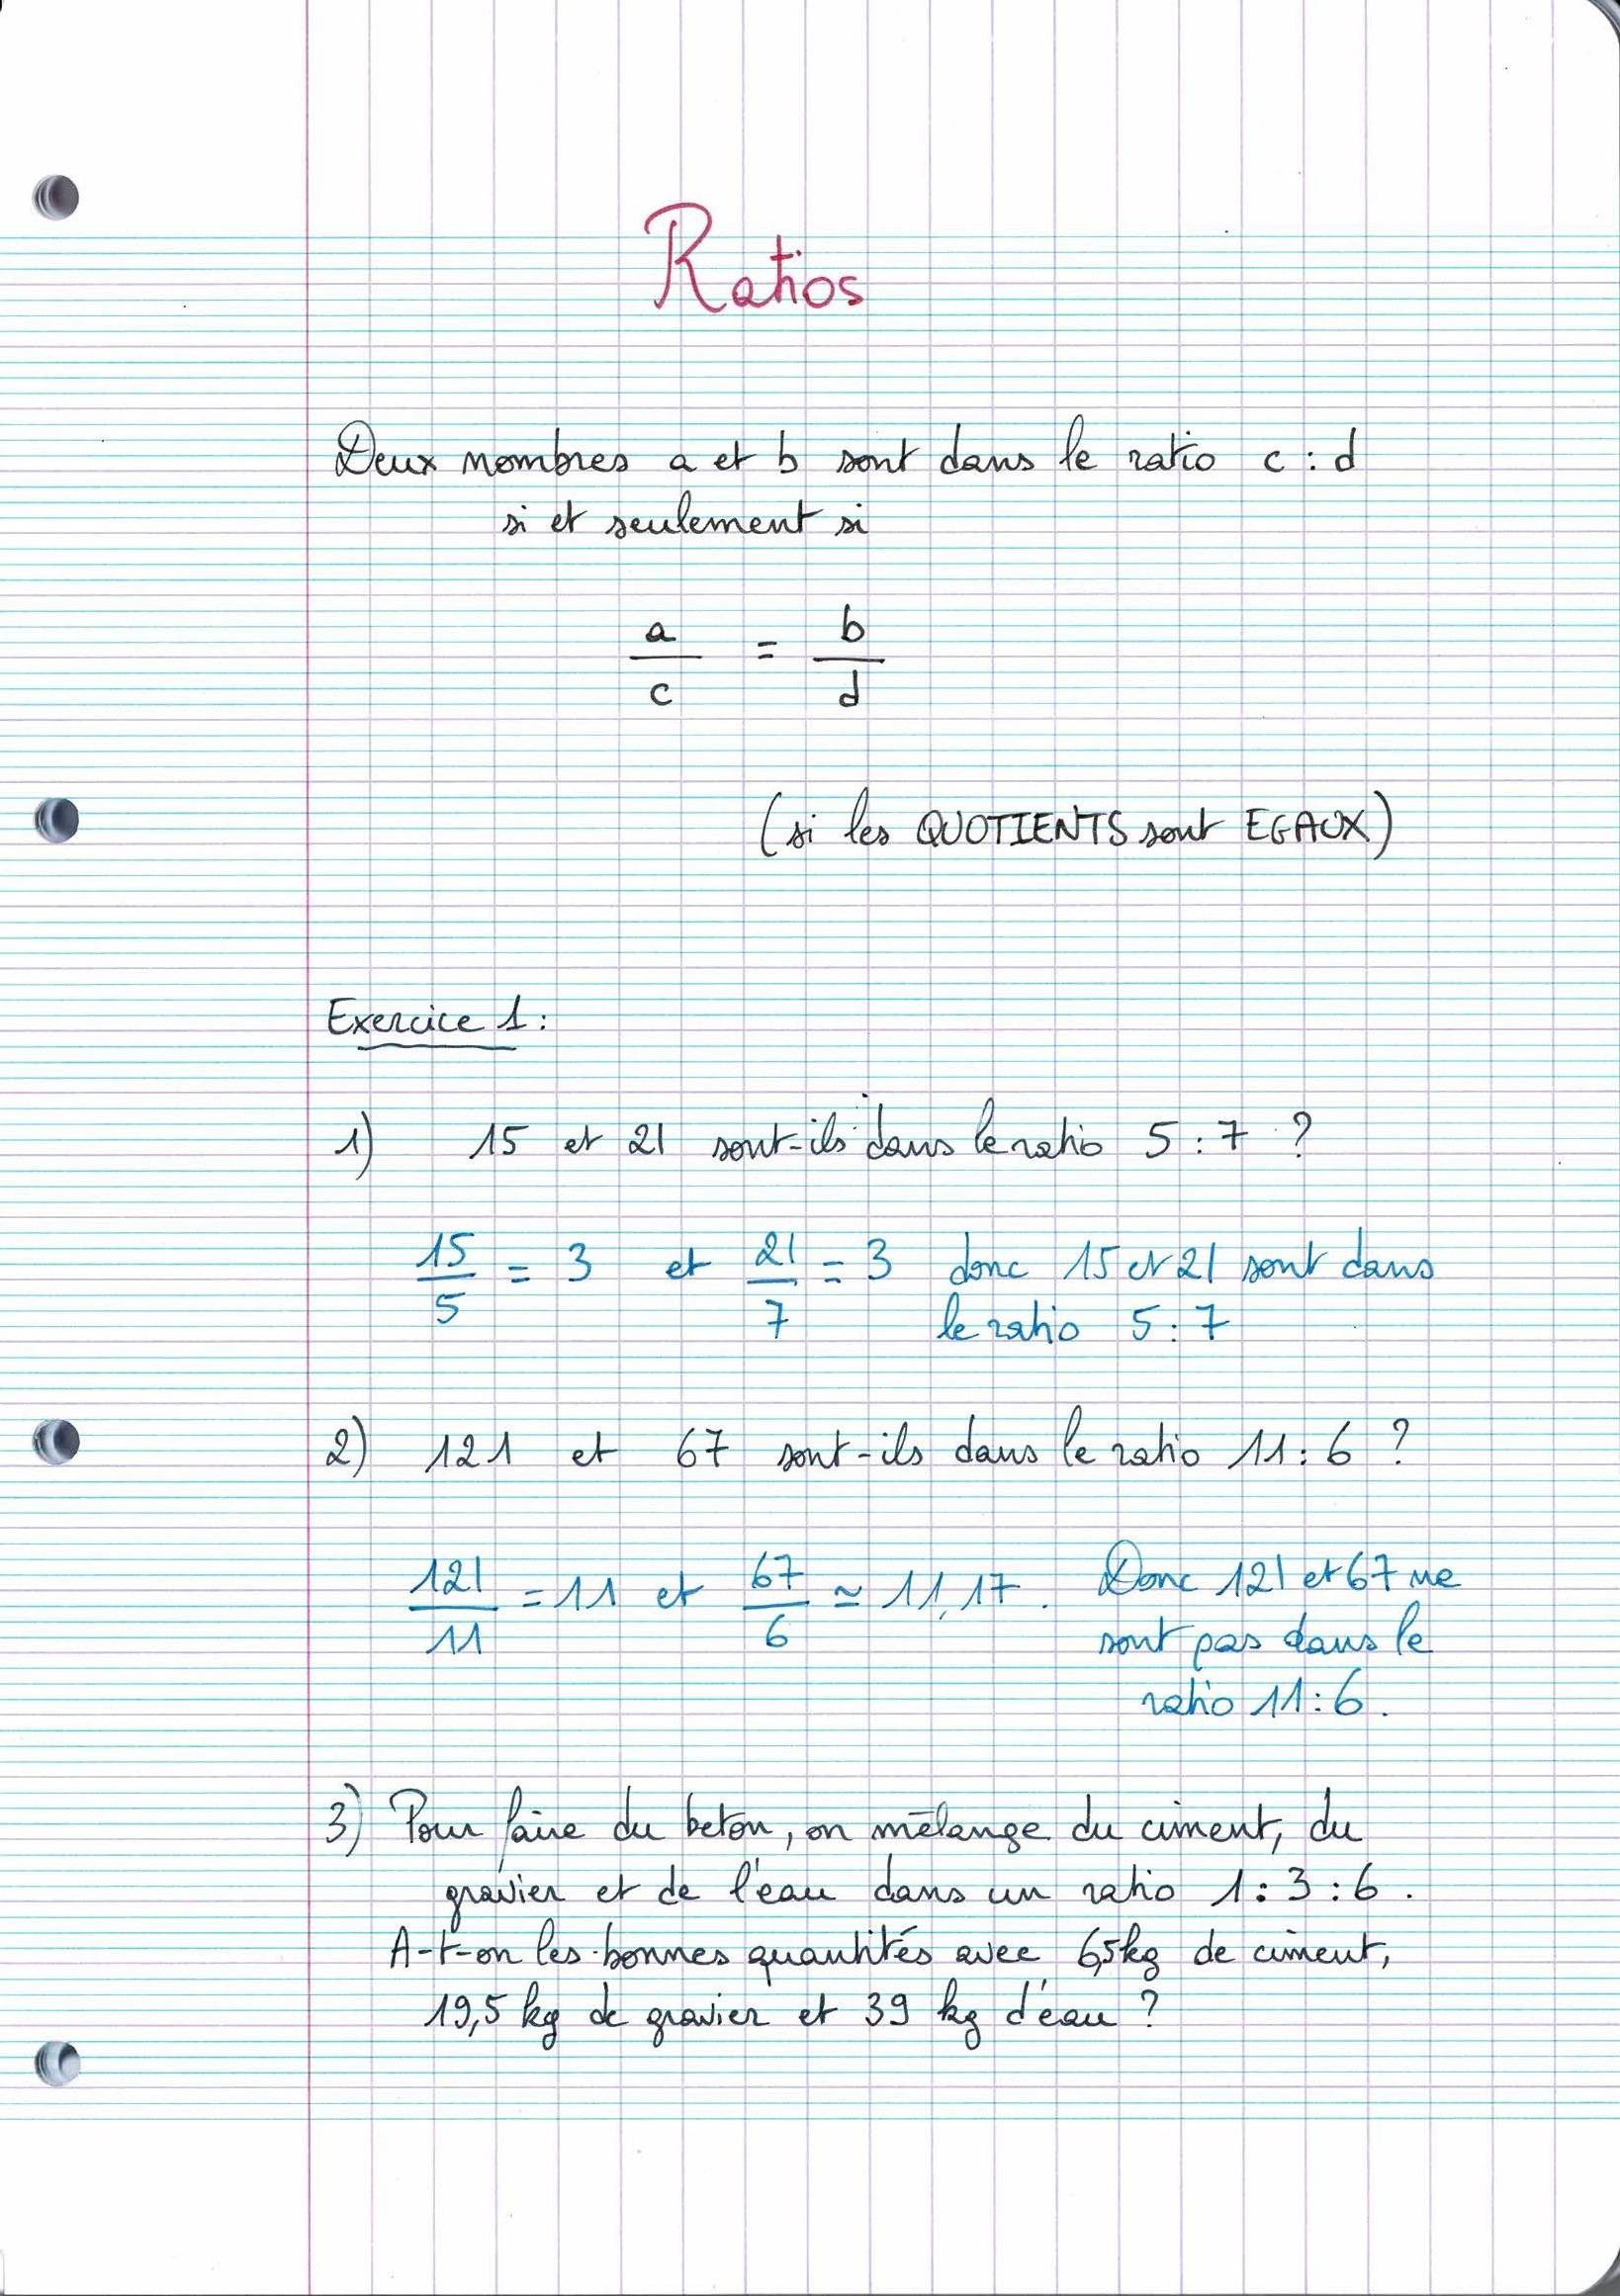 Ratios
Deux nombres a et b sont dans le ratio c : d
si et seulement si
a/c = b/d
(si les QUOTIENTS sont EGAUX)
Exercice 1 :
1) 15 et 21 sont-ils dans le ratio 5 : 7 ?
15/5 = 3 et 21/7 = 3 donc 15 et 21 sont dans
le ratio 5 : 7
2) 121 et 67 sont-ils dans le ratio 11 : 6 ?
121/11 = 11 et 67/6 ≃ 11,17. Donc 121 et 67 ne
sont pas dans le
ratio 11 : 6.
3) Pour faire du beton, on mélange du ciment, du
gravier et de l'eau dans un ratio 1 : 3 : 6.
A-t-on les bonnes quantités avec 6,5kg de ciment,
19,5 kg de gravier et 39 kg d'eau ?